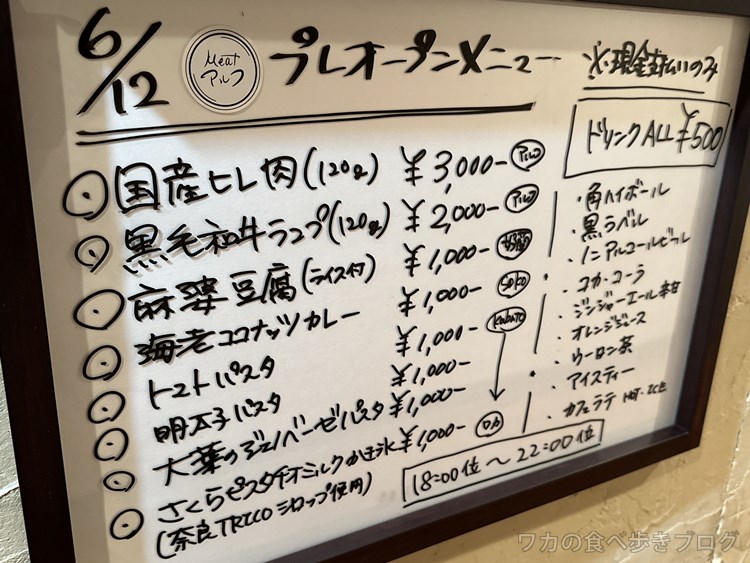 6/12
Meat
アルフ
プレオープンメニュー
※現金支払いのみ
ドリンクALL ¥500
国産ヒレ肉(120g) ¥3,000-
黒毛和牛ランプ(120g) ¥2,000-
麻婆豆腐(ライス付) ¥1,000-
海老ココナッツカレー ¥1,000- SOKO
トマトパスタ ¥1,000- KABUTO
明太子パスタ ¥1,000-
大葉のジェノベーゼパスタ ¥1,000-
さくらピスタチオミルクかき氷 ¥1,000-
(奈良TRECOシロップ使用)
・角ハイボール
・黒ラベル
・ノンアルコールビール
・コカ・コーラ
・ジンジャーエール辛口
・オレンジジュース
・ウーロン茶
・アイスティー
・カフェラテ HOT・ICE
18:00位〜22:00位
ワカの食べ歩きブログ